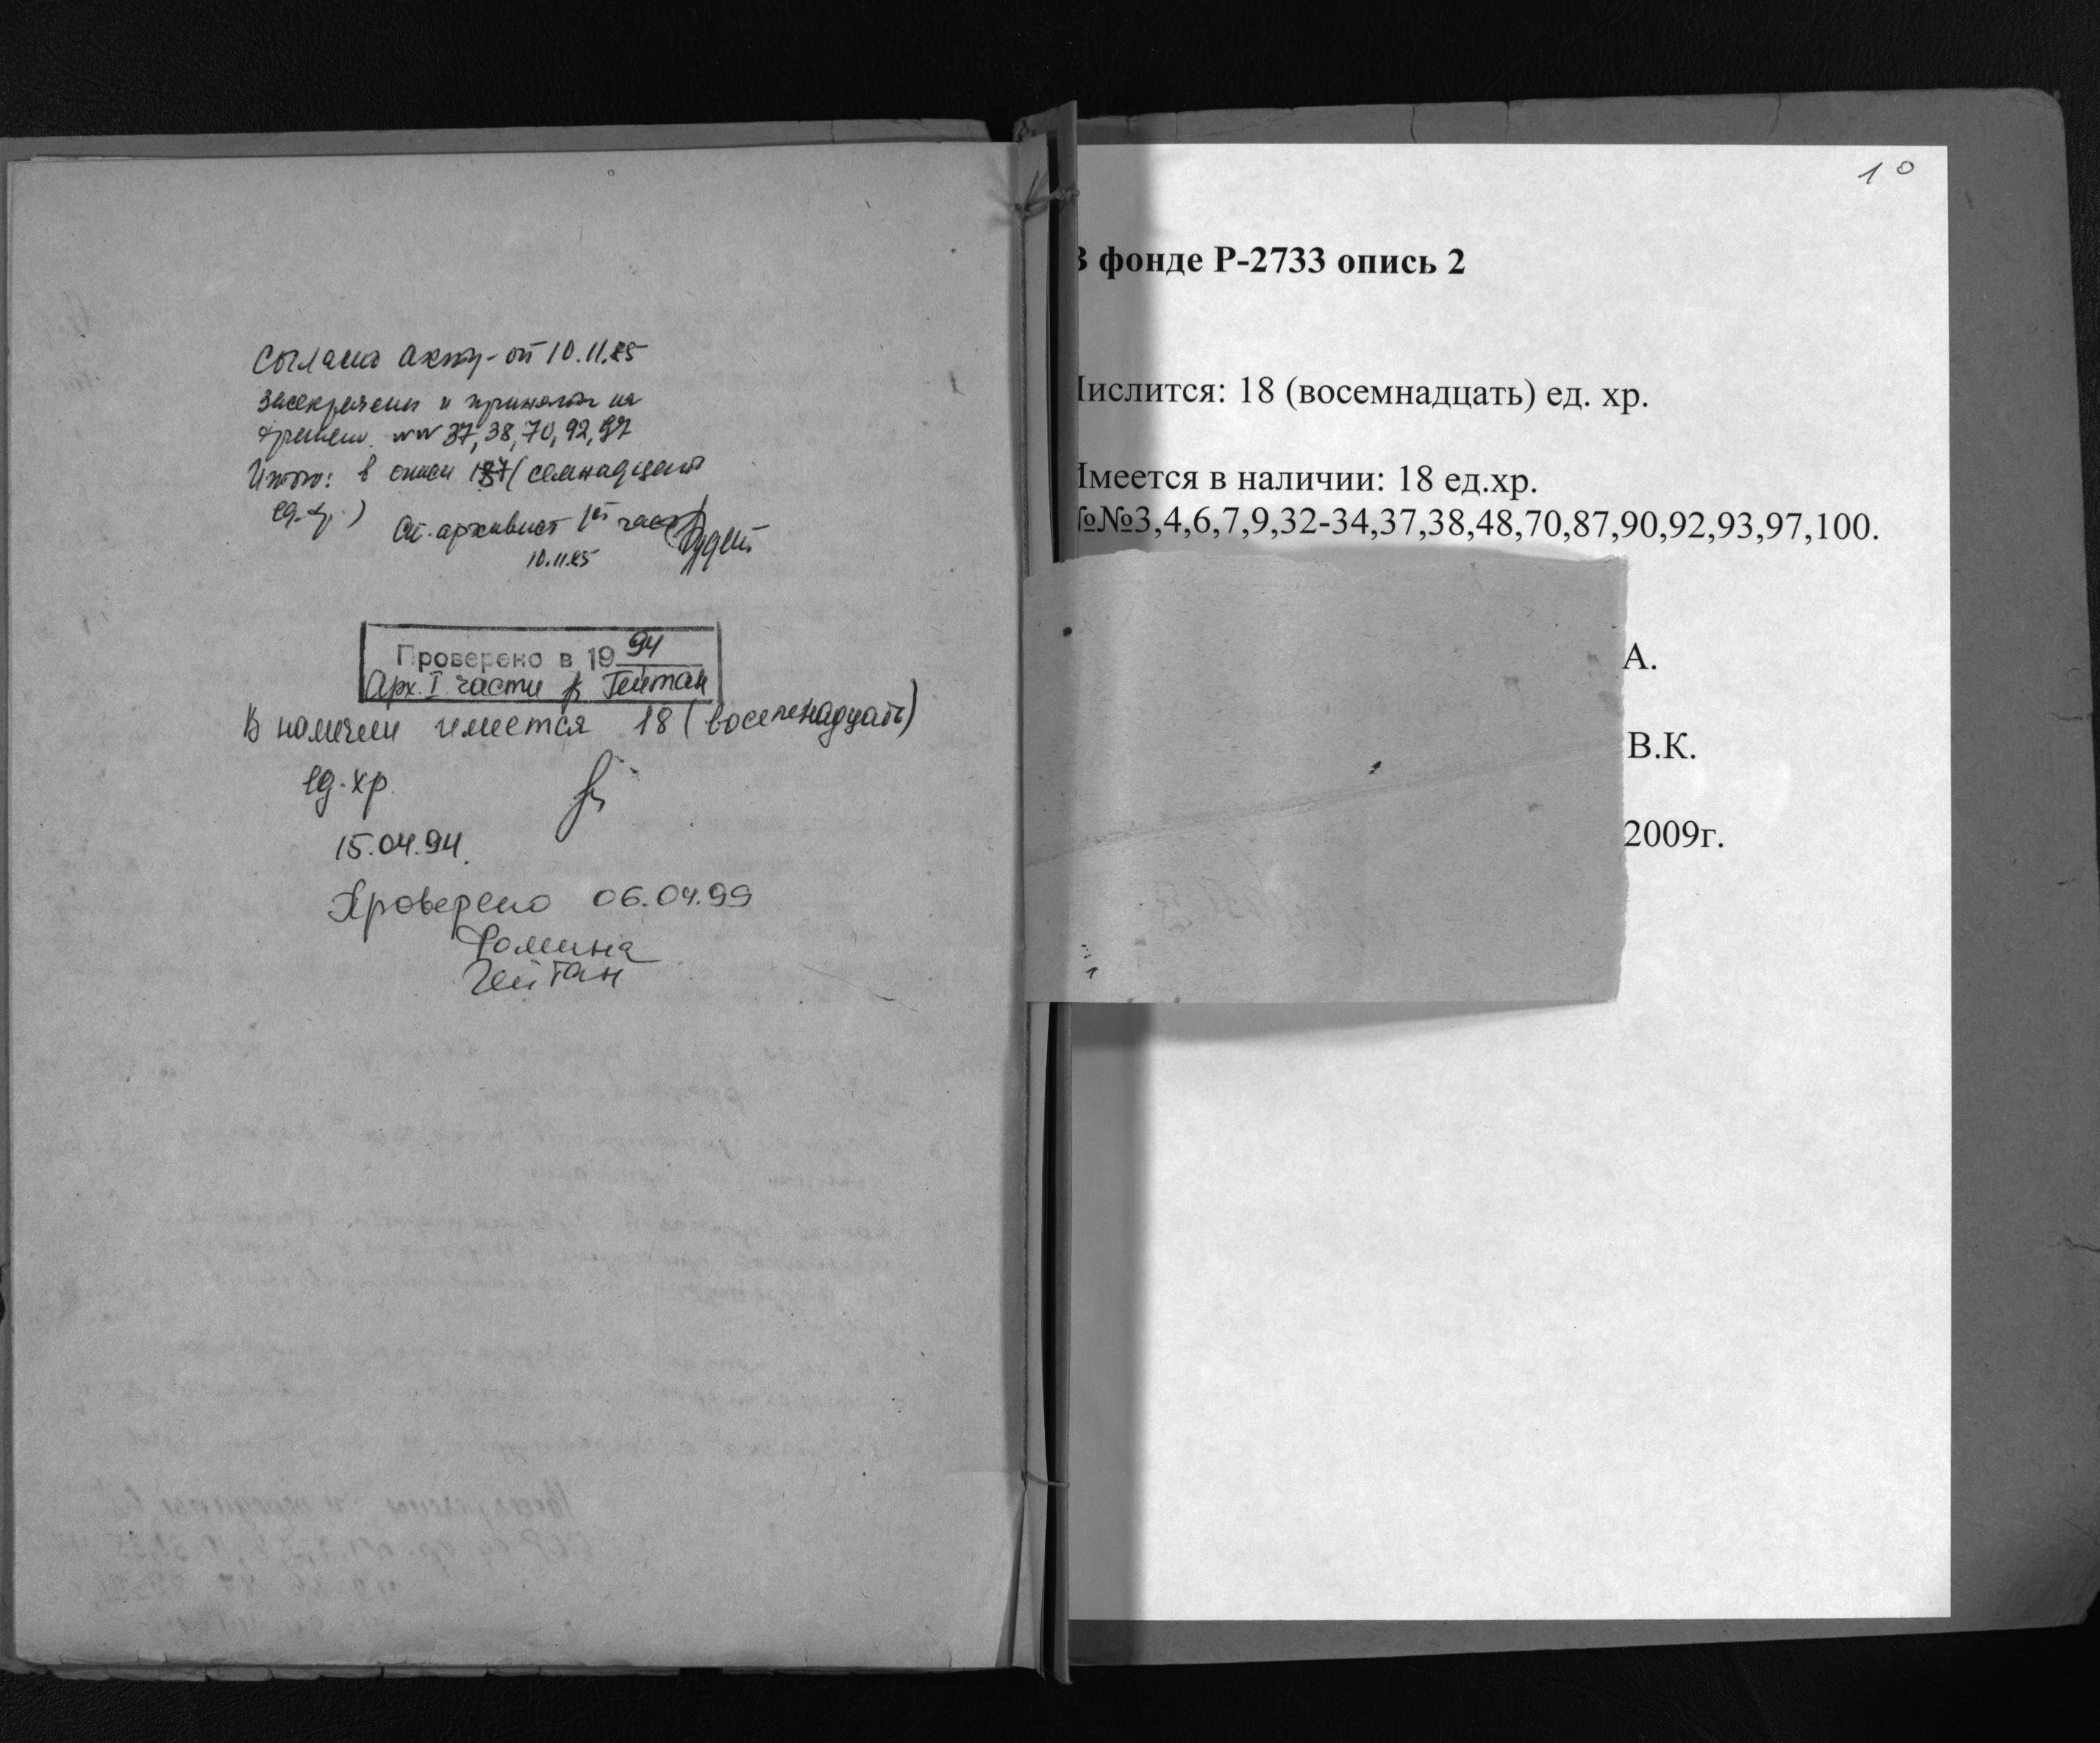 Согласно Акту от 10.11.85
засекречены и приняты на
хранен. №№ 37, 38, 70, 92, 97
Итого: в описи 17 (семнадцать
ед. хр.)
Ст. архивист 1ой части
10.11.85
Проверено в 1994
Арх. I части Гейтан
В наличии имеется 18 (восемнадцать)
ед. хр.
15.04.94.
Проверено 06.04.99
Фомина
Гейтан
10
В фонде Р-2733 опись 2
Числится: 18 (восемнадцать) ед. хр.
Имеется в наличии: 18 ед.хр.
№№3,4,6,7,9,32-34,37,38,48,70,87,90,92,93,97,100.
А.
В.К.
2009г.